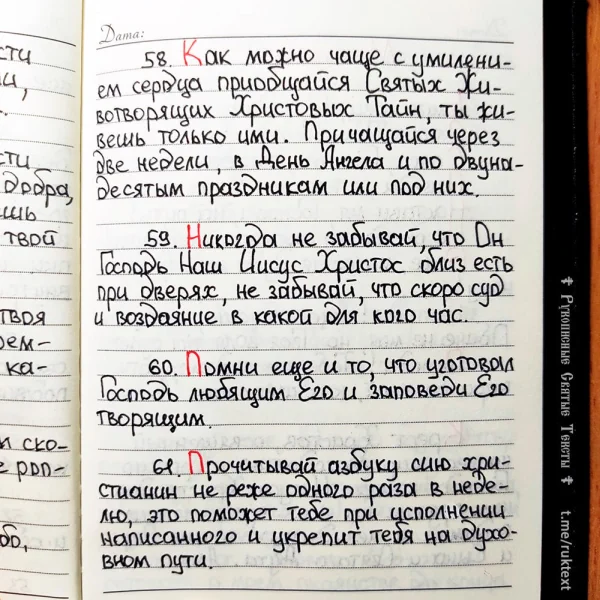 Дата:
58. Как можно чаще с умилени-
ем сердца приобщайся Святых Жи-
вотворящих Христовых Тайн, ты жи-
вешь только ими. Причащайся через
две недели, в День Ангела и по двуна-
десятым праздникам или под них.
59. Никогда не забывай, что Он
Господь Наш Иисус Христос близ есть
при дверях, не забывай, что скоро суд
и воздаяние в какой для кого час.
60. Помни еще и то, что уготовал
Господь любящим Его и заповеди Его
творящим.
61. Прочитывай азбуку сию хри-
стианин не реже одного раза в неде-
лю, это поможет тебе при исполнении
написанного и укрепит тебя на духо-
вном пути.
сти
ми,
сти
добра,
ишь
твой
твоя
рем-
ка-
и ско-
е роп-
обо,
Рукописные Святые Тексты
t.me/ruktext